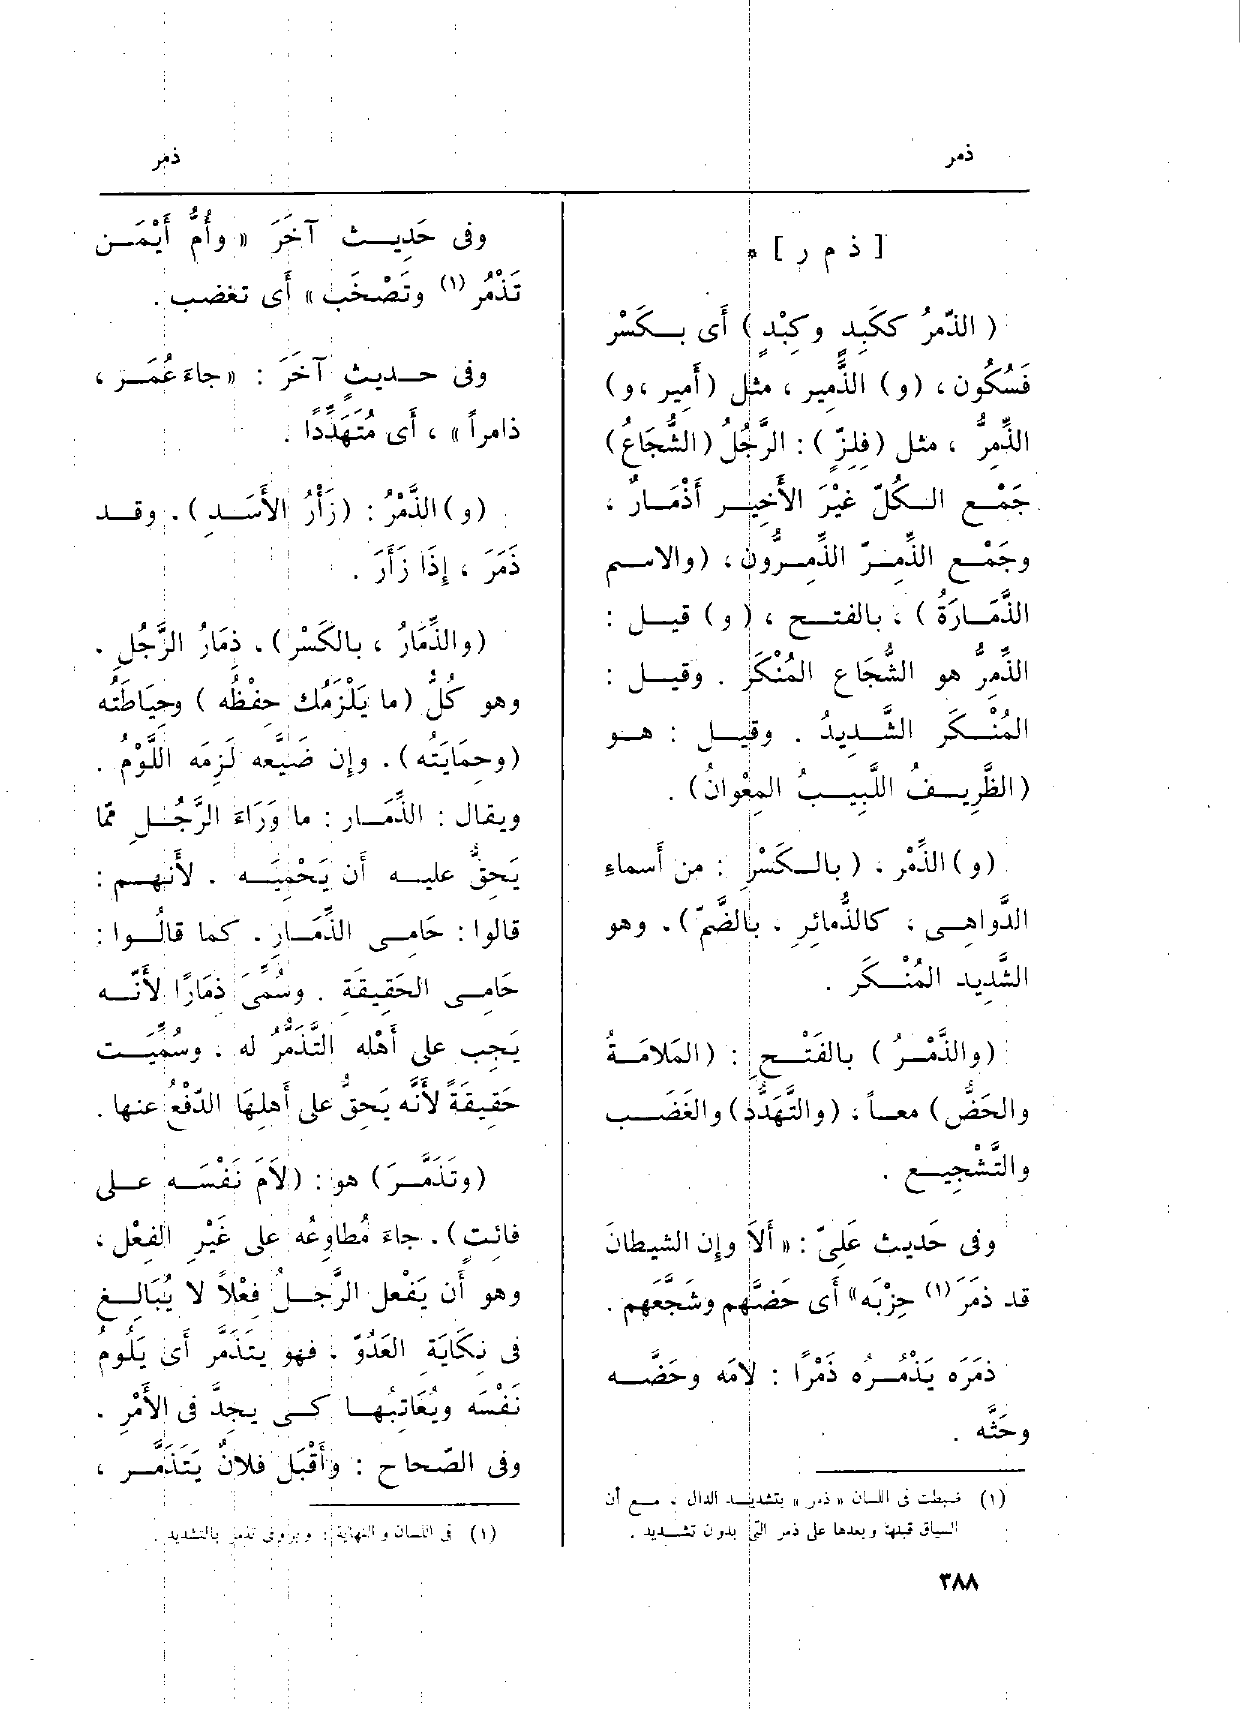 ذمر
ذمر
[ ذ م ر ] *
( الذَّمِرُ ككَبِدٍ وكِبْدٍ ) أى بـكَسْرٍ
فسُكُون ، (و) الذَّمِير ، مثل (أَمِير ، و)
الذِّمِرُّ ، مثل (فِلِزّ) : الرَّجُلُ (الشُّجَاعُ)
جَمْع الكُلّ غَيْرَ الأَخِير أَذْمَارٌ ،
وجَمْع الذِّمِرّ الذِّمِرُّون ، (والاسم
الذَّمَارَةُ) ، بالفتح ، (و) قيل :
الذِّمِرُّ هو الشُّجَاع المُنْكَر . وقيل :
المُنْكَر الشَّدِيدُ . وقيل : هو
(الظَّرِيفُ اللَّبِيبُ المِعْوانُ) .
(و) الذِّمْر ، ( بالكَسْرِ : من أَسماءِ
الدَّواهِى ، كالذُّمائِرِ ، بالضَّمّ) . وهو
الشَّدِيد المُنْكَر .
(والذَّمْرُ ) بالفَتْح : (المَلَامَةُ
والحَضُّ) معاً ، (والتَّهَدُّد) والغَضَب
والتَّشْجِيع .
وفى حَدِيث عَلِىّ : « أَلاَ وإن الشيطانَ
قد ذمَرَ (١) حِزْبَه» أى حَضَّهم وشَجَّعهم .
ذمَرَه يَذْمُره ذَمْرًا : لامَه وحَضَّه
وحَثَّه .
(١) ضبطت فى اللسان « ذمر » بتشديد الدال ، مع أن
السياق قبلها وبعدها على ذمر التى بدون تشديد .
٣٨٨
وفى حَدِيث آخَرَ « وأُمُّ أَيْمَن
تَذْمُر (١) وتَصْخَب » أَى تغضب .
وفى حديثٍ آخَرَ : « جاءَ عُمَر ،
ذامراً » ، أَى مُتَهَدِّدًا .
(و) الذَّمْرُ : (زَأْرُ الأَسَد) . وقد
ذَمَرَ ، إِذَا زَأَرَ .
(والذِّمَارُ ، بالكَسْر) . ذمَارُ الرَّجُلِ .
وهو كُلُّ (ما يَلْزَمُك حفْظُه ) وحِيَاطَتُه
(وحِمَايَتُه) . وإن ضَيَّعه لَزِمَه اللَّوْمُ .
ويقال : الذِّمَار : ما وَرَاءَ الرَّجُل ممّا
يَحِقُّ عليه أَن يَحْمِيَه . لأَنهم :
قالوا : حَامِى الذِّمَار . كما قالُوا :
حَامِى الحَقِيقَة . وسُمِّىَ ذمَارًا لأَنَّه
يَجِب على أَهْله التَّذَمُّرُ له . وسُمِّيَت
حَقِيقَةً لأَنَّه يَحِقُّ على أَهلِهَا الدّفْعُ عنها .
(وتَذَمَّرَ) هو : (لَامَ نَفْسَه على
فائِتٍ) . جاءَ مُطاوِعُه على غَيْرِ الفِعْل ،
وهو أَن يَفْعل الرَّجلُ فِعْلاً لا يُبَالِغ
فى نكَايَة العَدُوّ . فهو يتَذَمَّر أَى يَلُومُ
نَفْسَه ويُعَاتِبُها كى يجِدَّ فى الأَمْرِ .
وفى الصّحاح : وأَقْبَل فلانٌ يَتَذَمَّر ،
(١) فى اللسان والنهاية : ويروى تذمر بالتشديد .